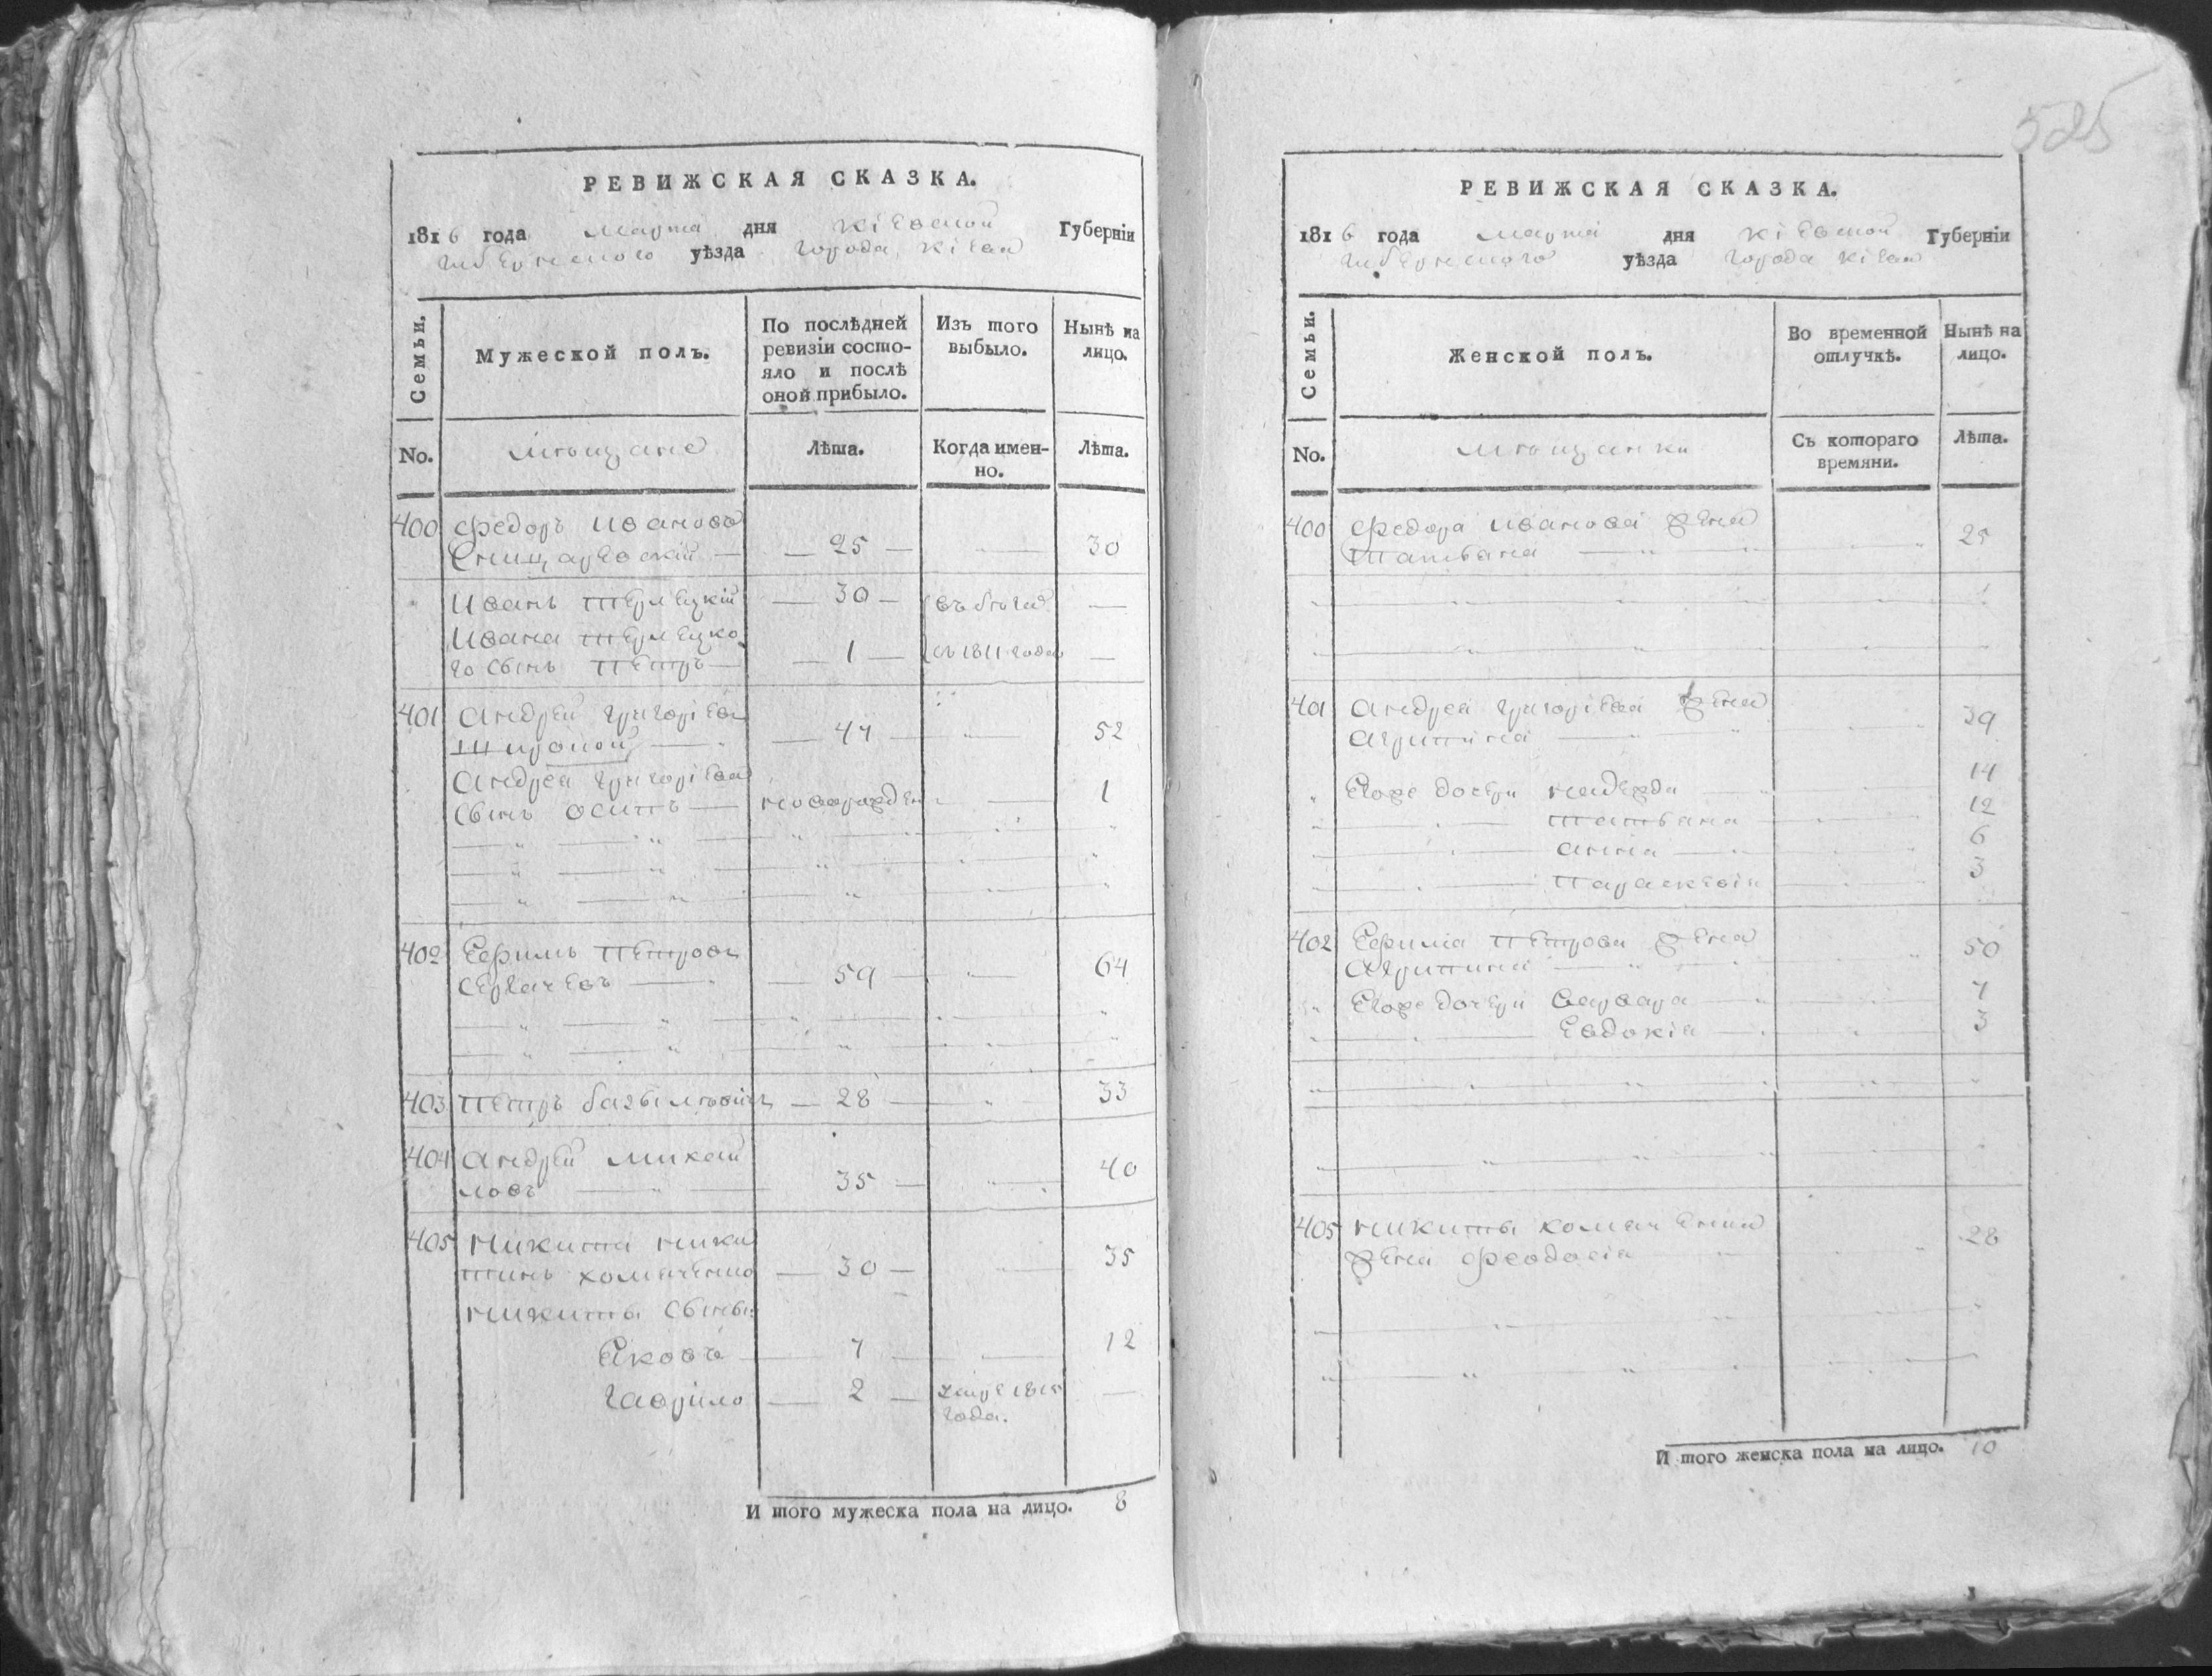 РЕВИЖСКАЯ СКАЗКА.
1816 года марта дня Кіевской Губерніи
Губернского уѣзда города Кіева
Семьи.
Мужеской полъ.
По послѣдней ревизіи состо-
яло и послѣ
оной прибыло.
Изъ того
выбыло.
Нынѣ на
лицо.
No.
мѣщане
Лѣта.
Когда имен-
но.
Лѣта.
400 Федоръ Ивановъ
Снищаревскій — 25 — 30
Иванъ Терлецкій — 30 — въ бѣга
Ивана Терлецко
го сынъ Петръ — 1 — съ 1811 года
401 Андрей Григоріевъ
Широкой — 47 — 52
Андрея Григоріева
сынъ Осипъ — новорожден 1
402 Ефимъ Петровъ
Сергачевъ — 59 — 64
403 Петръ — 28 — 33
404 Андрей Михай
ловъ — 35 — 40
405 Никита Ники
тинъ — 30 — 35
Никиты сыны
Яковъ — 7 — 12
Гаврило — 2 — умре 1815
года.
И того мужеска пола на лицо. 8
525
РЕВИЖСКАЯ СКАЗКА.
1816 года марта дня Кіевской Губерніи
Губернского уѣзда города Кіева
Семьи.
Женской полъ.
Во временной
отлучкѣ.
Нынѣ на
лицо.
No.
мѣщанки
Съ котораго
времяни.
Лѣта.
400 Федора Иванова жена
Татьяна 25
401 Андрея Григоріева жена
Агрипина 39
Егоже дочери Надежда 14
Татьяна 12
Анна 6
Параскевія 3
402 Ефима Петрова жена
Агрипина 50
Егоже дочери Варвара 7
Евдокія 3
405 Никиты
жена Феодосія 28
И того женска пола на лицо. 10